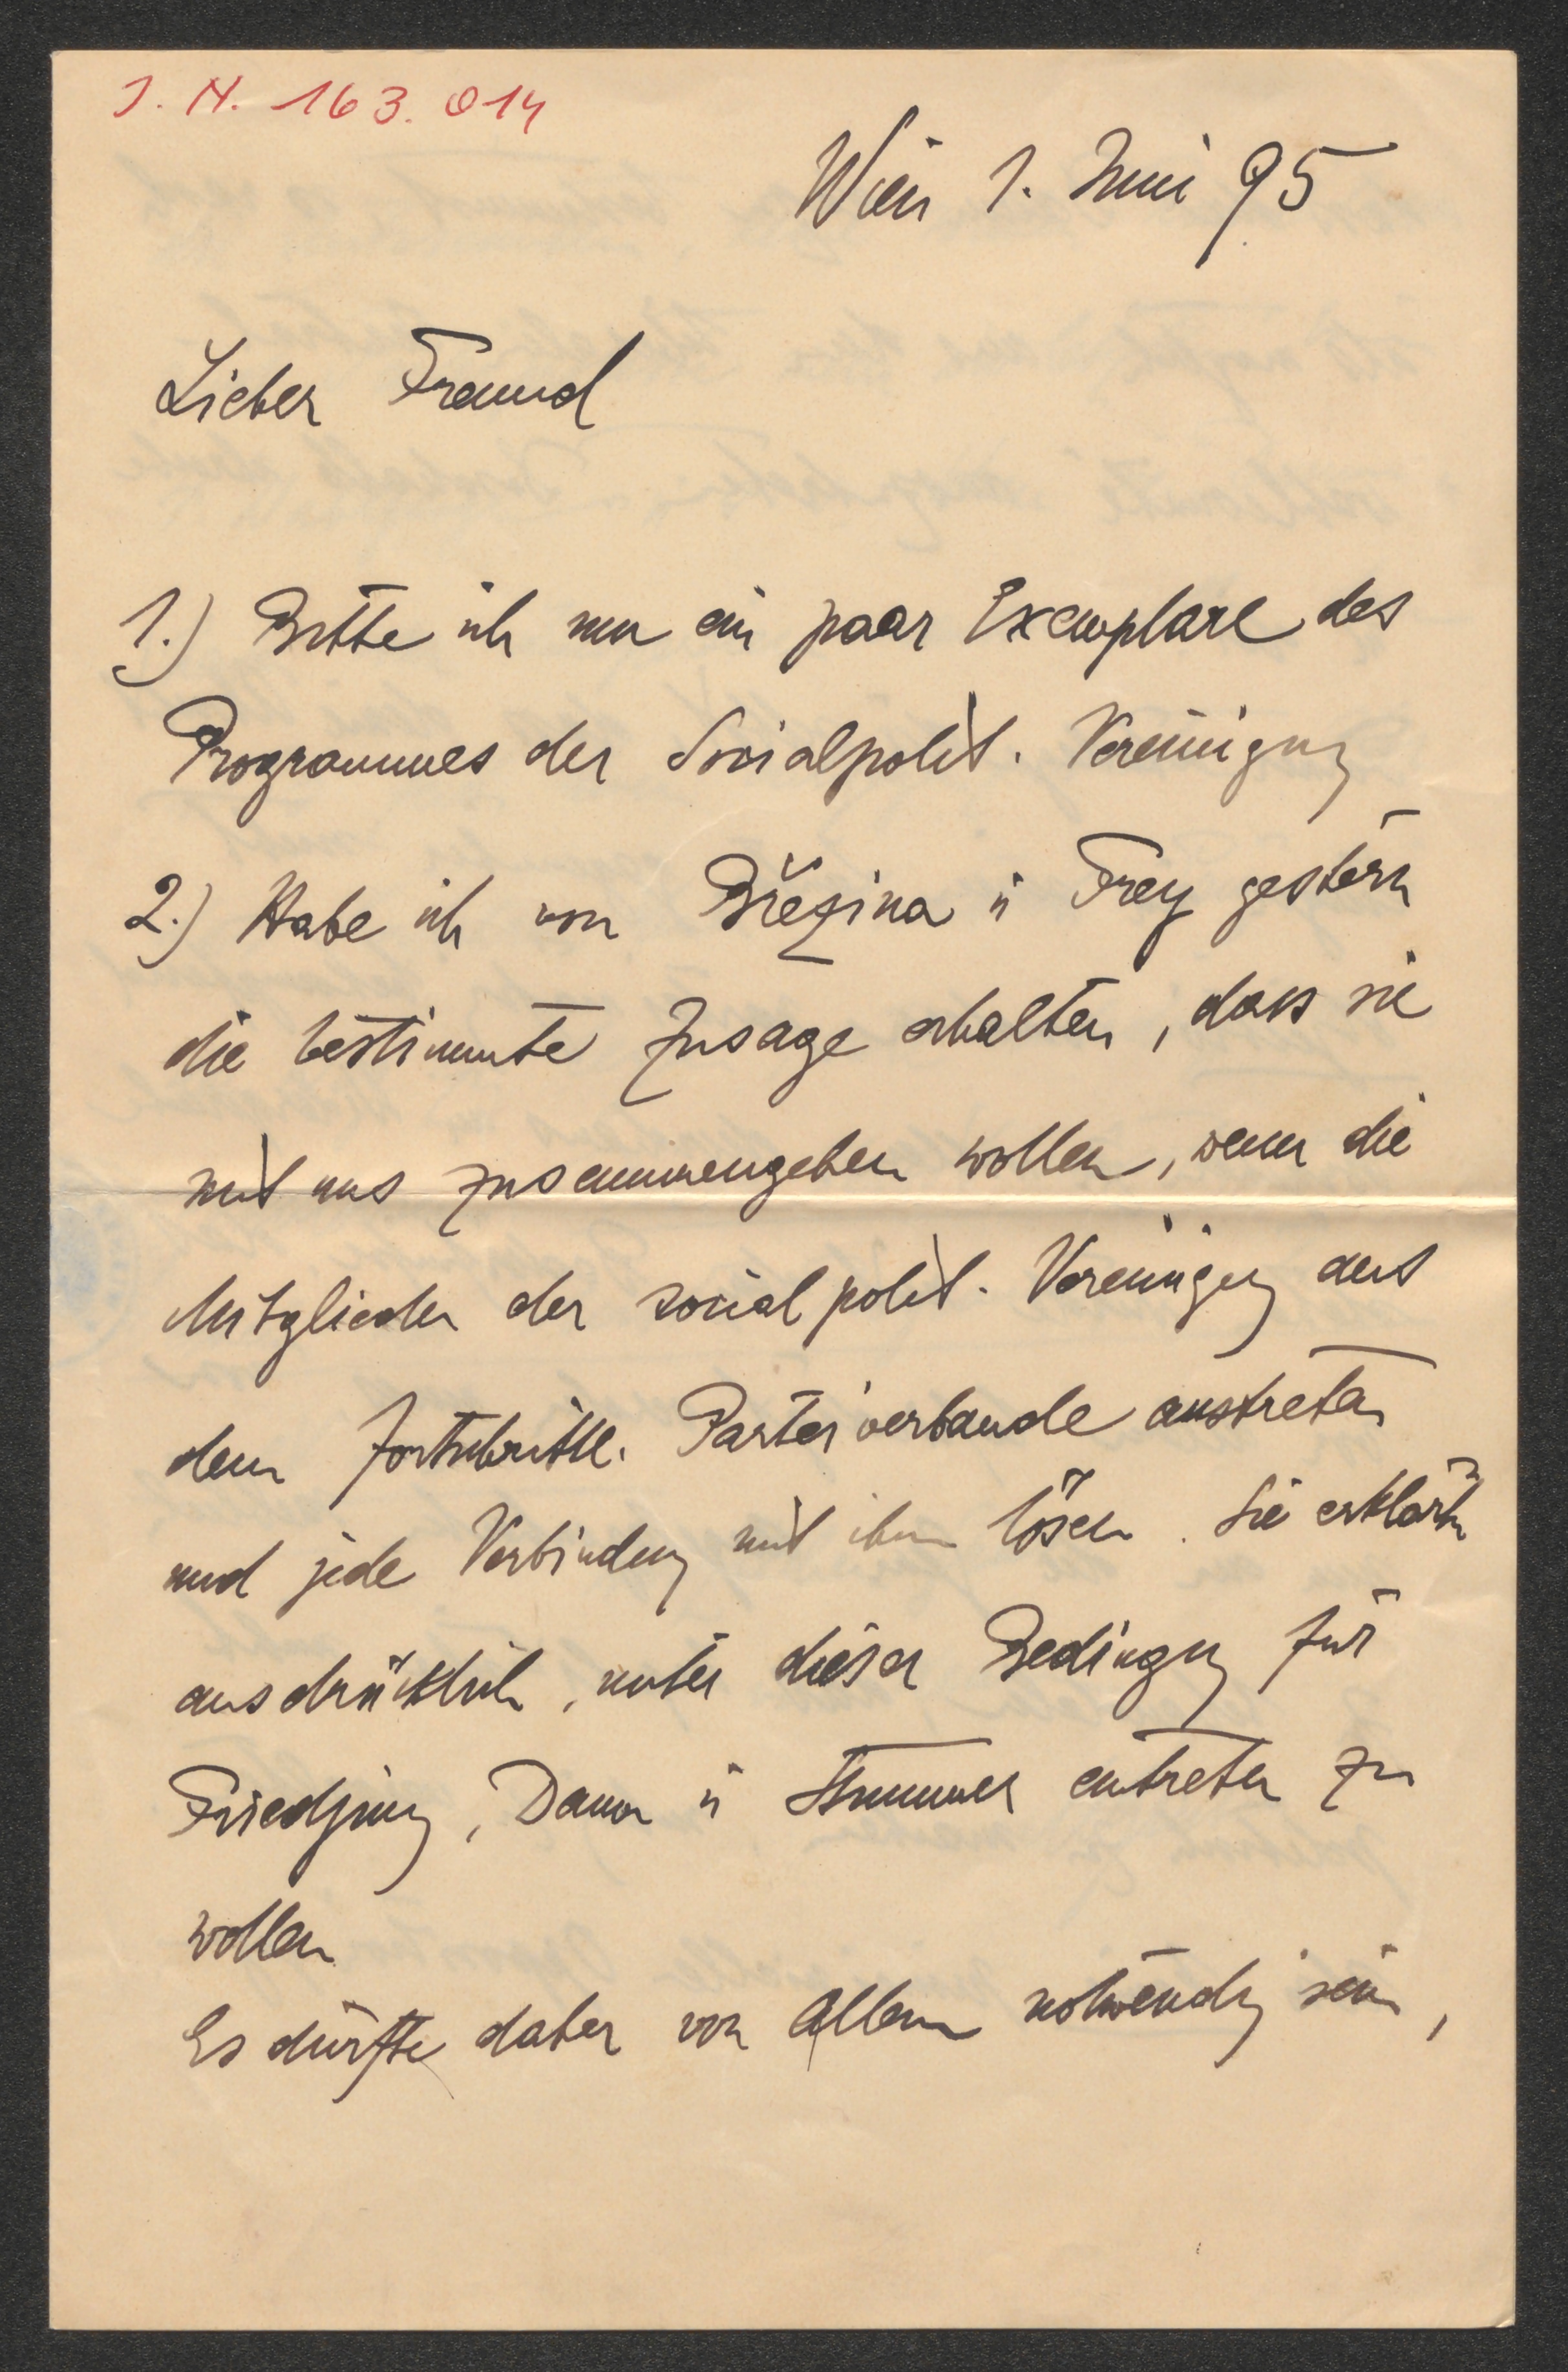 J. N. 163.014
Wien 1. Juni 95
Lieber Freund
1.) Bitte ich um ein paar Exemplare des
Programmes der Socialpolit. Vereinigung
2.) Habe ich von Březina u Frey gestern
die bestimmte Zusage erhalten, dass sie
mit uns zusammengehen wollen, wenn die
Mitglieder der social polit. Vereinigung aus
dem fortschrittl. Parteiverbande austreten
und jede Verbindung mit ihm lösen. Sie erklärten
ausdrücklich, unter dieser Bedingung für
Friedjung, u eintreten zu
wollen
Es dürfte daher vor Allem notwendig sein,